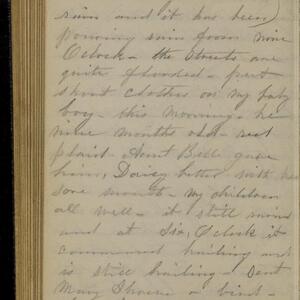 rain and it has been
pouring rain from nine
O'clock - the Streets are
quite flooded - put
short clothes on my baby
boy - this morning - he
nine months old - red
plaid - Aunt Belle gave
him, Darcy better with her
sore mouth - my children
all well - it still rains
and at Six, O'clock it
commenced hailing and
is still hailing - Sent
Mary a bird -